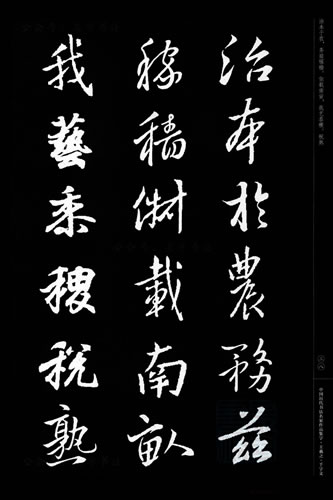 治本於農務茲
稼穡俶載南畝
我藝黍稷稅熟